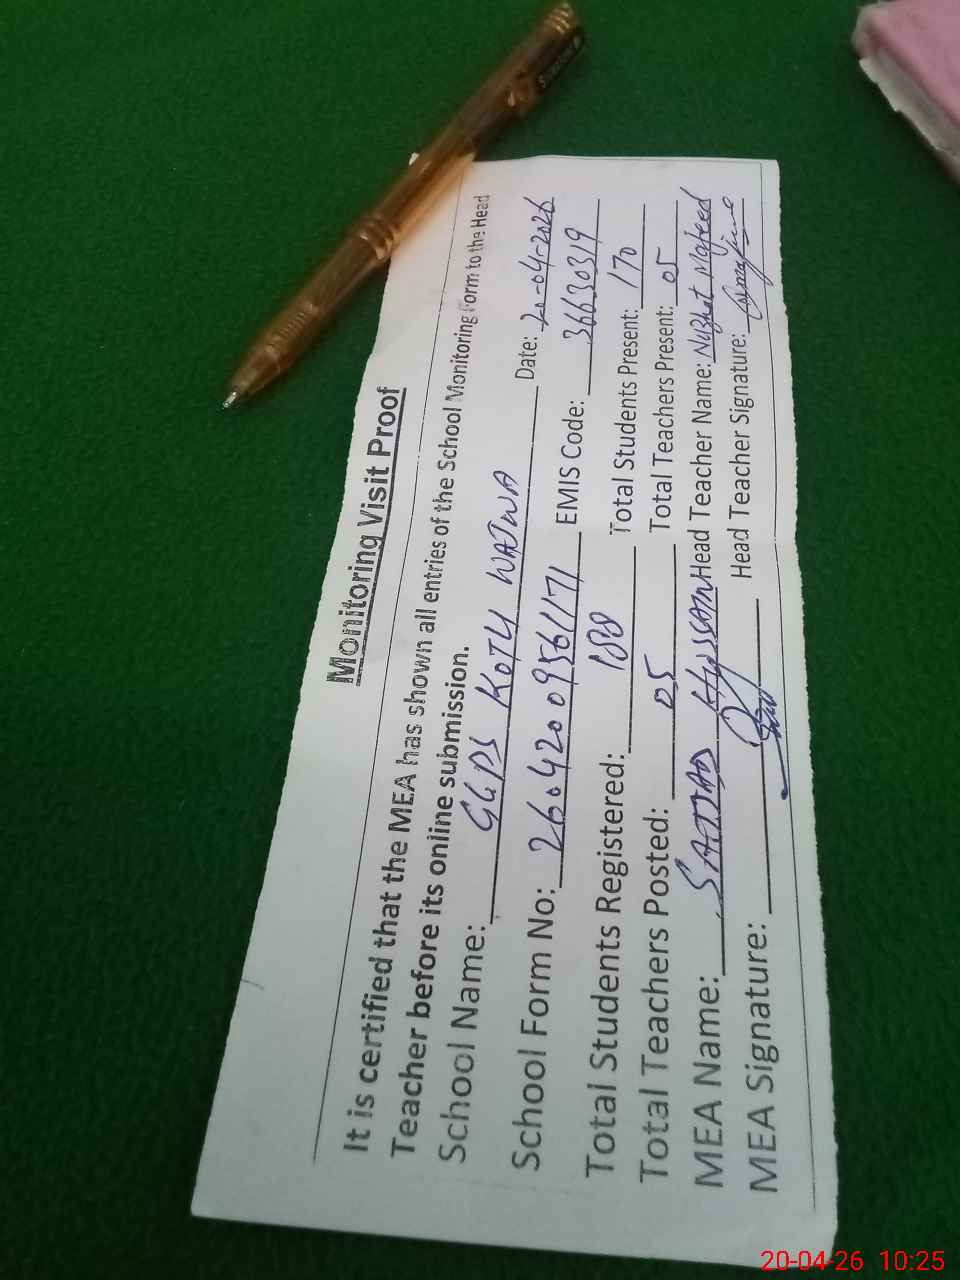 Monitoring Visit Proof
It is certified that the MEA has shown all entries of the School Monitoring Form to the Head
Teacher before its online submission.
School Name: GGPS KOTLI WAJWA Date: 20-04-2026
School Form No: 2604200956171 EMIS Code: 36630319
Total Students Registered: 188 Total Students Present: 170
Total Teachers Posted: 05 Total Teachers Present: 05
MEA Name: SAJJAD HUSSAIN Head Teacher Name: Nuzhat Majeed
MEA Signature: Head Teacher Signature:
20-04-26 10:25